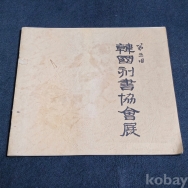 第三回
韓國刻書協會展
kobay